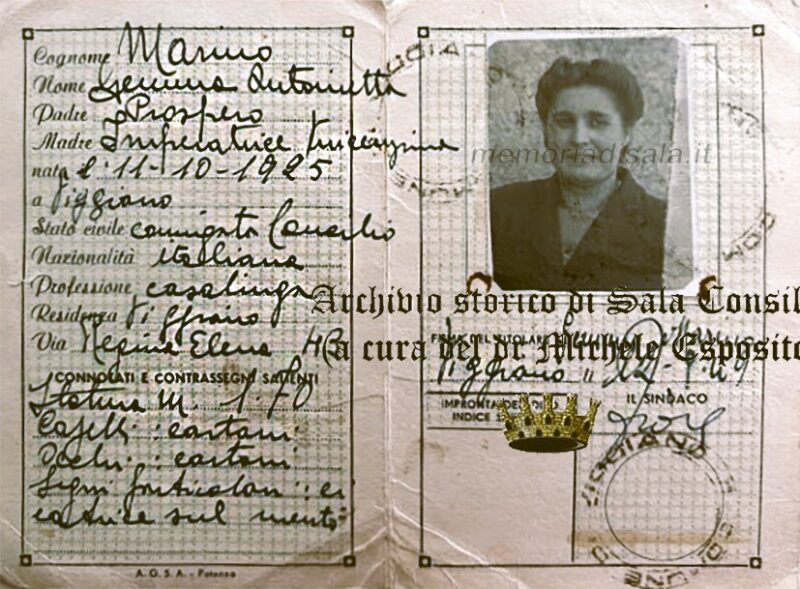 Cognome Marino
Nome Gemma Antonietta
Padre Prospero
Madre Imperatrice Vincenzina
nata l'11-10-1925
a Viggiano
Stato civile coniugata Consilio
Nazionalità italiana
Professione casalinga
Residenza Viggiano
Via Regina Elena 43
CONNOTATI E CONTRASSEGNI SALIENTI
Statura M. 1.70
Capelli: castani
Occhi: castani
Segni particolari: ci
catrice sul mento
A. G. S. A. - Potenza
memoriadisala.it
Archivio storico di Sala Consil
(a cura del dr Michele Esposito
FIRMA DEL TITOLARE
Viggiano
IL SINDACO
IMPRONTA DEL DITO
INDICE
VIGGIANO